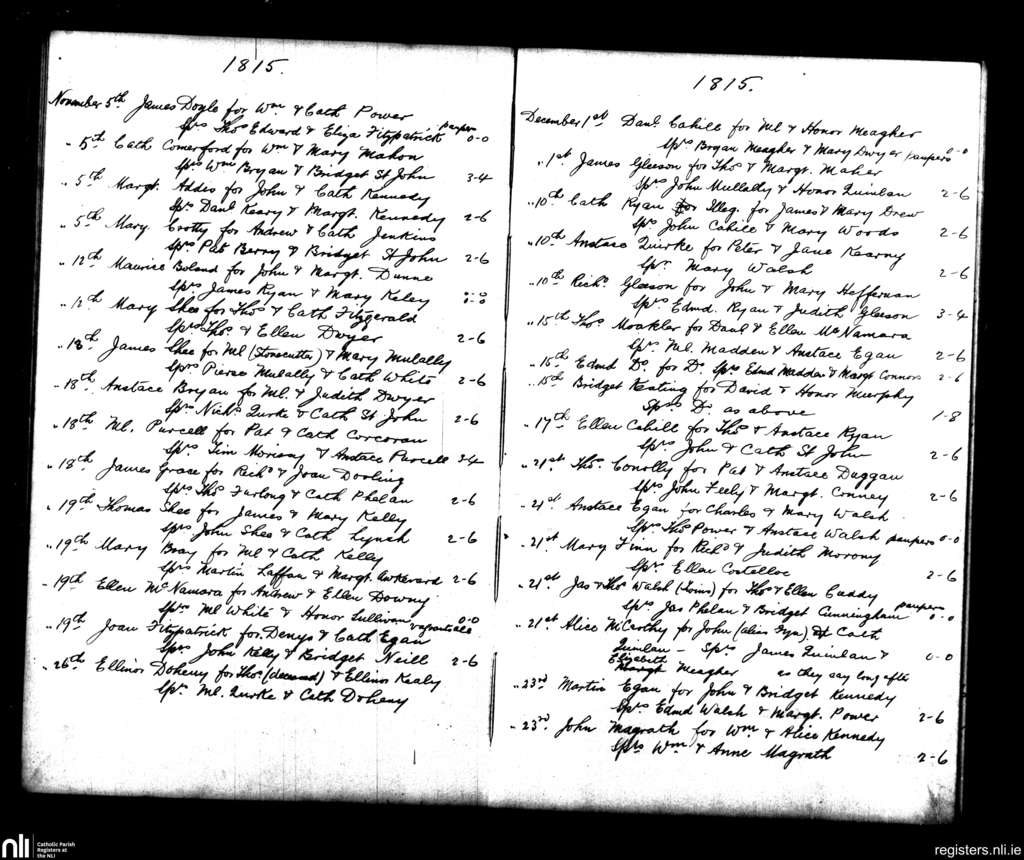 1815.
November 5th James Doyle for Wm & Cath Power
Sprs Thos Edward & Eliza Fitzpatrick paupers 0-0
" 5th Cath Comerford for Wm & Mary Mahon
Sprs Wm Bryan & Bridget St John 3-4
" 5th Margt. Addis for John & Cath Kennedy
Sprs Danl Keary & Margt. Kennedy 2-6
" 5th Mary Crotty for Andrew & Cath Jenkins
Sprs Pat Berny & Bridget St John 2-6
" 12th Maurice Boland for John & Margt. Dunne
Sprs James Ryan & Mary Keley 0-0
" 12th Mary Shee for Thos & Cath Fitzgerald
Sprs Thos. & Ellen Dwyer 2-6
" 18th James Shee for Ml (Stonecutter) & Mary Mulally
Sprs Pierce Mulally & Cath White 2-6
" 18th Anstace Bryan for Ml. & Judith Dwyer
Sprs Nichs Quirke & Cath St John 2-6
" 18th Ml. Purcell for Pat & Cath Corcoran
Sprs Tim Morissy & Anstace Purcell 3-4
" 18th James Grace for Richd & Joan Dooling
Sprs Thos Furlong & Cath Phelan 2-6
" 19th Thomas Shee for James & Mary Kelly
Sprs John Shee & Cath Lynch 2-6
" 19th Mary Bray for Ml & Cath Kelly
Sprs Martin Laffan & Margt. Awkevard 2-6
" 19th Ellen McNamara for Andrew & Ellen Downy
Sprs Ml White & Honor Sullivan 0-0
" 19th Joan Fitzpatrick for Denys & Cath Egan
Sprs John Kelly & Bridget Neill 2-6
" 26th Ellinor Doheny for Thos (deceased) & Ellinor Kealy
Sprs Ml. Quirke & Cath Doheny
1815.
December 1st Danl. Cahill for Ml & Honor Meagher
Sprs Bryan Meagher & Mary Dwyer paupers 0-0
" 1st James Gleeson for Thos & Margt. Maher
Sprs John Mullally & Honor Quinlan 2-6
" 10th Cath Ryan for Illeg. for James & Mary Drew
Sprs John Cahill & Mary Woods 2-6
" 10th Anstace Quirke for Peter & Jane Kearny
Spr. Mary Walsh 2-6
" 10th Richd. Gleeson for John & Mary Heffernan
Sprs Edmd. Ryan & Judith Gleeson 3-4
" 15th Thos. Moakler for Danl & Ellen McNamara
Sprs. Ml. Madden & Anstace Egan 2-6
" 15th Edmd Do. for Do. Sprs Edmd Madden & Margt Connors 2-6
" 15th Bridget Keating for David & Honor Murphy
Sprs Do. as above 1-8
" 17th Ellen Cahill for Thos & Anstace Ryan
Sprs John & Cath St John 2-6
" 21st Thos. Conolly for Pat & Anstace Duggan
Sprs John Feely & Margt. Conney 2-6
" 21st Anstace Egan for Charles & Mary Walsh
Sprs Thos Power & Anstace Walsh paupers 0-0
" 21st Mary Finn for Richd & Judith Morony
Spr. Ellen Costelloe 2-6
" 21st Jas & Thos Walsh (Twins) for Thos & Ellen Cuddy
Sprs Jas Phelan & Bridget Cunningham paupers 0-0
" 21st Alice McCarthy for John & Cath
Quinlan - Sprs James Quinlan & 0-0
Elizabeth Meagher as they say long after
" 23rd Martin Egan for John & Bridget Kennedy
Sprs Edmd Walsh & Margt. Power 2-6
" 23rd. John Magrath for Wm & Alice Kennedy
Sprs Wm & Anne Magrath 2-6
nli Catholic Parish Registers at the NLI
registers.nli.ie